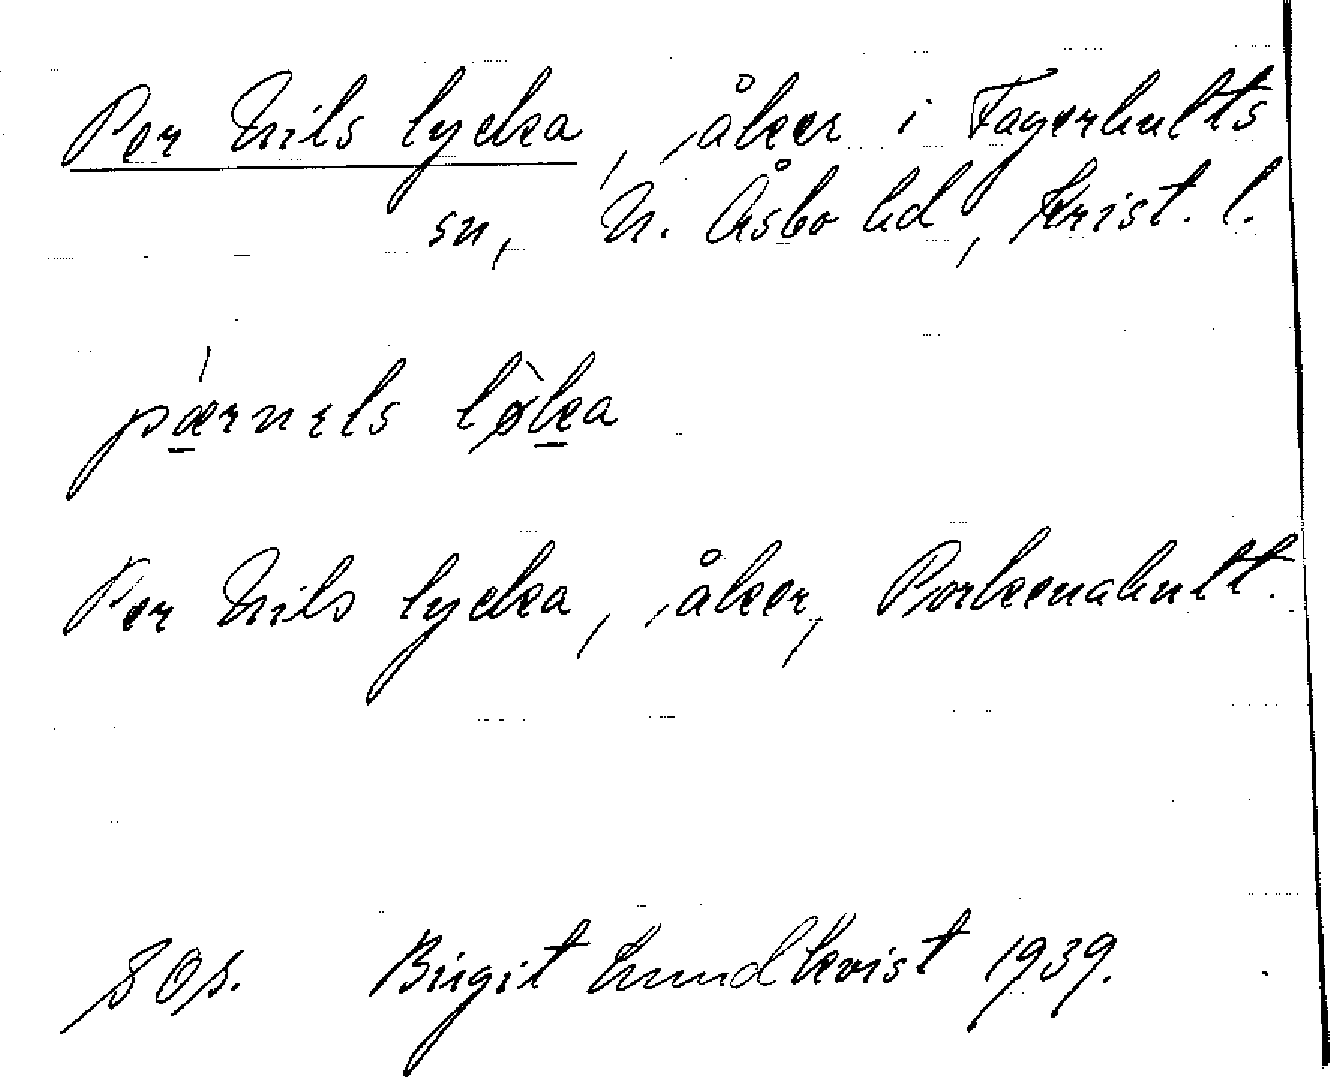 Per Nils lycka, åker i Fagerhults
sn, N. Åsbo hd, Krist. l.
pǽrnɛls lø̀ka
Per Nils lycka, åker, Porkenahult.
Birgit Lundkvist 1939.